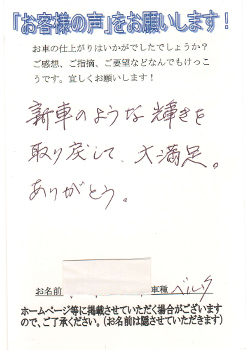 「お客様の声」をお願いします！
お車の仕上がりはいかがでしたでしょうか？
ご感想、ご指摘、ご要望などなんでもけっこ
うです。宜しくお願いします！
新車のような輝きを
取り戻して、大満足。
ありがとう。
お名前　．　．　．　車種 ベルタ
ホームページ等に掲載させていただく場合がございます
ので、ご了承ください。（お名前は隠させていただきます）